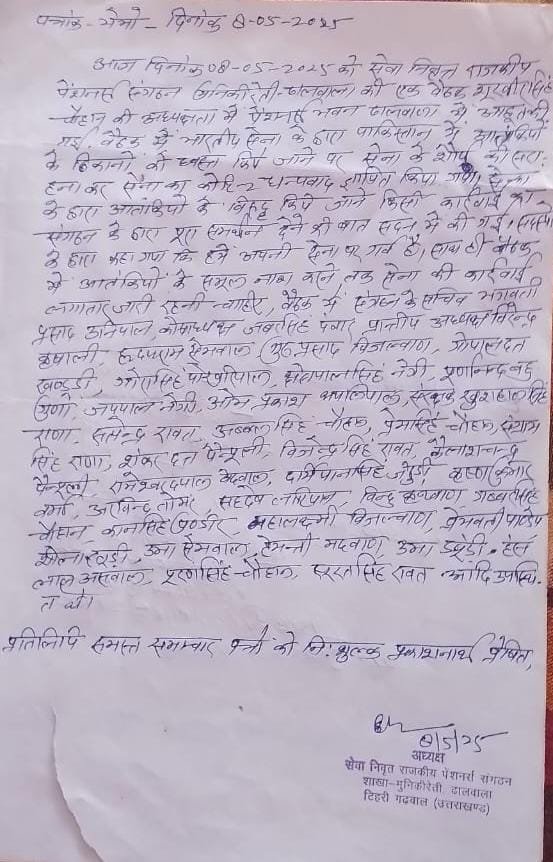 पत्रांक- मेमो - दिनांक 8-05-2025
आज दिनांक 08-05-2025 को सेवा निवृत राजकीय
पेंशनर्स संगठन मुनिकीरेती-ढालवाला की एक बैठक शूरवीरसिंह
चौहान की अध्यक्षता में पेंशनर्स भवन ढालवाला में आहूत की
गई, बैठक में भारतीय सेना के द्वारा पाकिस्तान में आतंकियों
के ठिकानों को ध्वस्त किए जाने पर सेना के शौर्य की सरा-
हना कर सेना का कोटि-2 धन्यवाद ज्ञापित किया गया, सेना
के द्वारा आतंकियों के विरुद्ध किये जाने किसी कार्रवाई का
संगठन के द्वारा पूरा समर्थन देने की बात सदन में की गई, सदस्यों
के द्वारा कहा गया कि हमें अपनी सेना पर गर्व है, साथ ही बैठक
में आतंकियों के समूल नाश करने तक सेना की कार्रवाई
लगातार जारी रहनी चाहिए, बैठक में संगठन के सचिव भगवती
प्रसाद उनियाल, कोषाध्यक्ष जबरसिंह पंवार, प्रान्तीय अध्यक्ष विरेन्द्र
कृषाली, रूपराम सेमवाल, गुरुप्रसाद बिजल्वाण, गोपालदत्त
खण्डूडी, गोरासिंह पोखरियाल, सिंह नेगी,
जयपाल नेगी, ओम प्रकाश थपलियाल, संरक्षक खुशहालसिंह
राणा, सतेन्द्र रावत, अब्बल सिंह चौहान, प्रेमसिंह चौहान, संग्राम
सिंह राणा, शंकर दत्त पैन्यूली, विजेन्द्र सिंह रावत, कैलाशचन्द्र
पैन्यूली, रामेश्वरदयाल बडवाल, सिंह कृष्णा कुमार
वर्मा, अरविन्द तोमर, गब्बरसिंह
चौहान, कानसिंह पुण्डीर, महालक्ष्मी बिजल्वाण, प्रेमवती पाण्डेय
खण्डूडी, उमा सेमवाल, हेमन्ती भदवाण, उमा हंस
लाल असवाल, पूरणसिंह चौहान, सूरतसिंह रावत आदि उपस्थि-
त थे।
प्रतिलिपि समस्त समाचार पत्रों को निःशुल्क प्रकाशनार्थ प्रेषित,
8/5/25
अध्यक्ष
सेवा निवृत राजकीय पेंशनर्स संगठन
शाखा-मुनिकीरेती, ढालवाला
टिहरी गढ़वाल (उत्तराखण्ड)